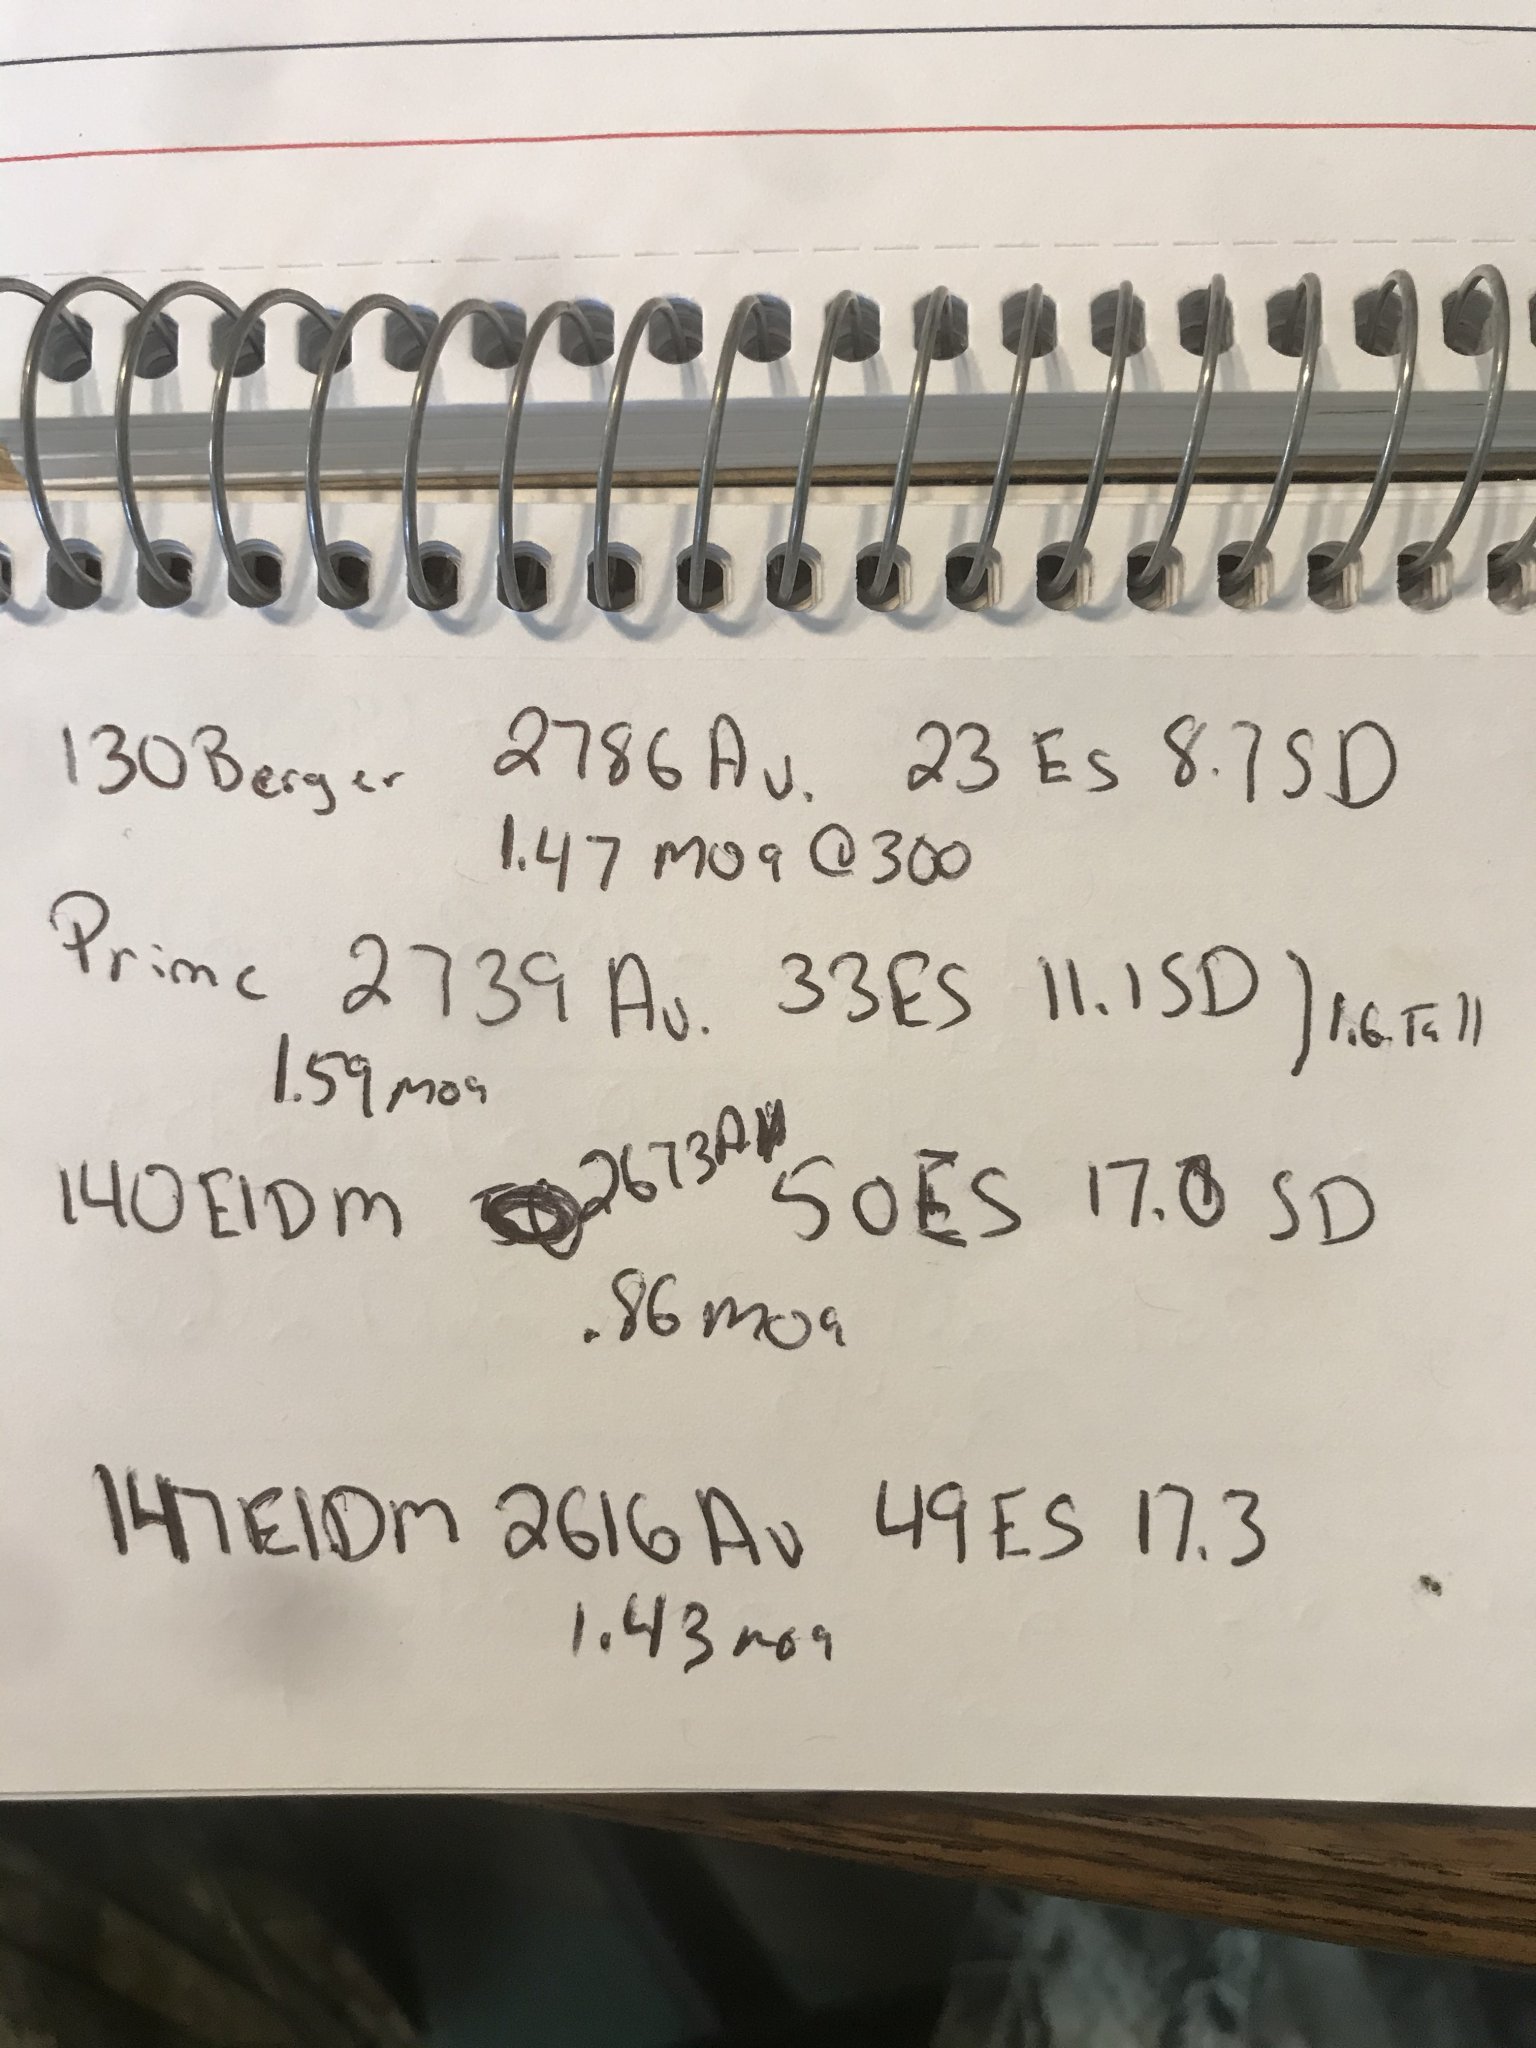 130 Berger 2786 Av. 23 ES 8.7 SD
1.47 moa @ 300
Prime 2739 Av. 33 ES 11.1 SD ) 1.6 Tall
1.59 moa
140 ElDm 2673 Av 50 ES 17.0 SD
.86 moa
147 ElDm 2616 Av 49 ES 17.3
1.43 moa